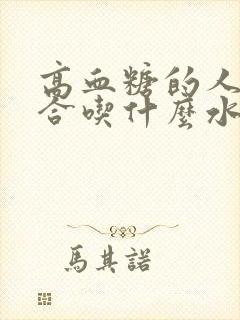 高血糖的人
合喫什麼水
馬其諾